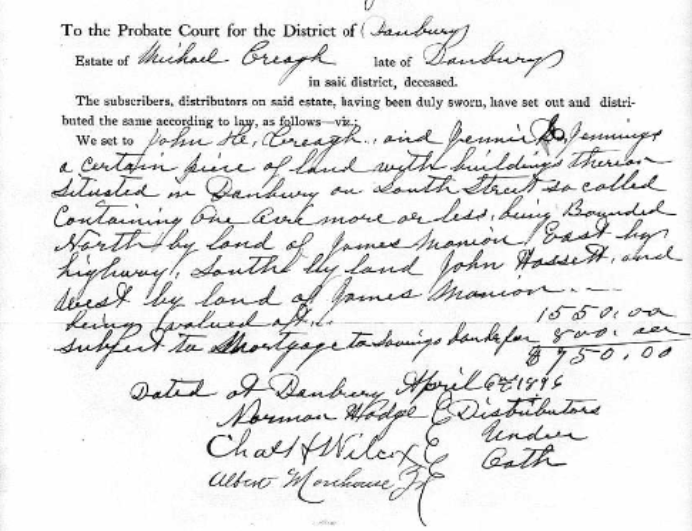 To the Probate Court for the District of Danbury
Estate of Michael Creagh late of Danbury
in said district, deceased.
The subscribers, distributors on said estate, having been duly sworn, have set out and distri-
buted the same according to law, as follows—viz.:
We set to John H. Creagh, and Jennie Jennings
a certain piece of land with buildings thereon
Situated in Danbury on South Street so called
Containing One Acre more or less, being Bounded
North by land of James Manion, East by
highway, South by land John Hassett, and
West by land of James Manion. —
being valued at.. 1550.00
subject to Mortgage to Savings bank for 800.00
$750.00
Dated at Danbury April 6th 1896
Norman Hodge Distributors
Chas H Wilcox Under
Albert Morehouse Oath